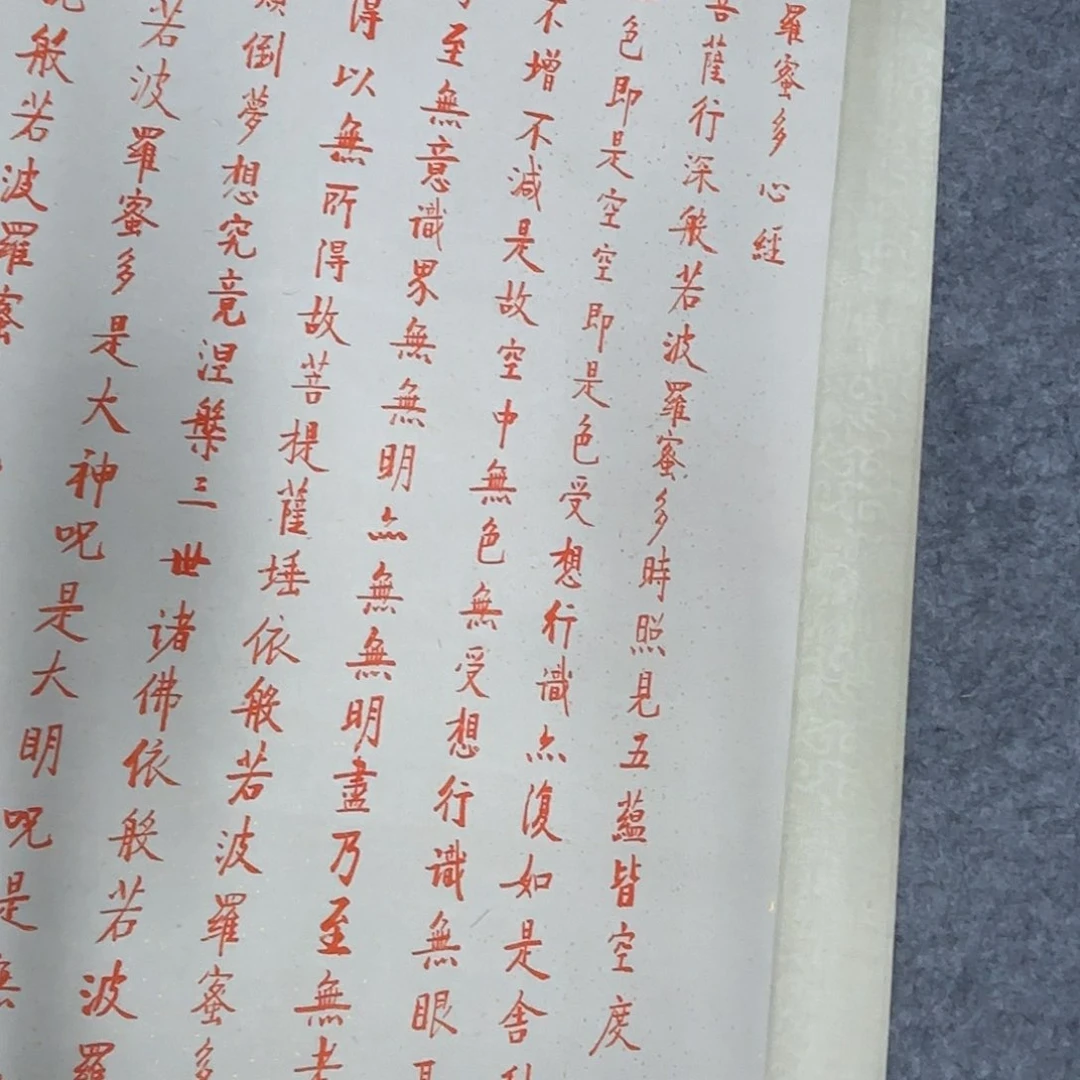 羅蜜多心經
菩薩行深般若波羅蜜多時照見五蘊皆空度
色即是空空即是色受想行識亦復如是舍
不增不減是故空中無色無受想行識無眼耳
至無意識界無無明亦無無明盡乃至無老
得以無所得故菩提薩埵依般若波羅蜜多
倒夢想究竟涅槃三世诸佛依般若波羅
若波羅蜜多是大神呪是大明呪是無
般若波羅蜜